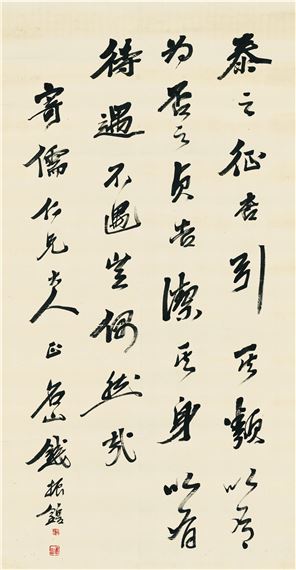 泰之征吉引其類以有
為否之貞吉潔其身以有
待遇不遇豈偶然哉
寄儒仁兄大人正名山錢振鍠